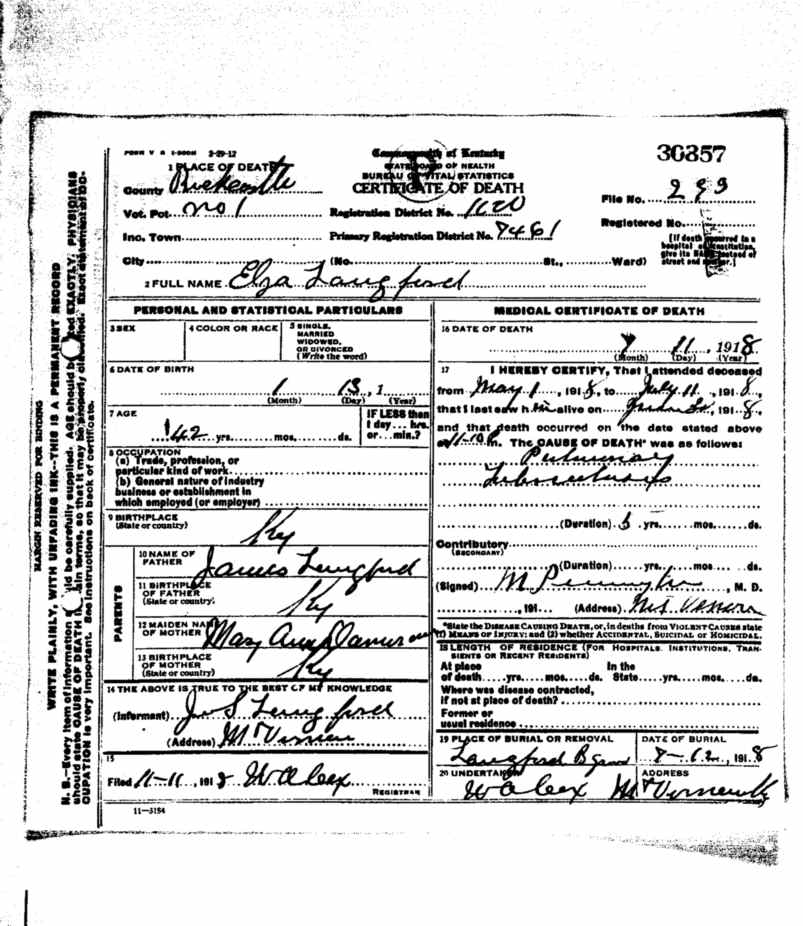 FORM V S 1-500M 2-29-12
Commonwealth of Kentucky
STATE BOARD OF HEALTH
BUREAU OF VITAL STATISTICS
CERTIFICATE OF DEATH
30357
1 PLACE OF DEATH
County Rockcastle
File No. 293
Vot. Pct. No 1
Registration District No. 1120
Registered No.
Inc. Town
Primary Registration District No. 7461
[If death occurred in a hospital or institution, give its NAME instead of street and number.]
City (No. St., Ward)
2 FULL NAME Elza Langford
PERSONAL AND STATISTICAL PARTICULARS
3 SEX
4 COLOR OR RACE
5 SINGLE, MARRIED WIDOWED, OR DIVORCED (Write the word)
6 DATE OF BIRTH
1 13, 1
(Month) (Day) (Year)
7 AGE
42 yrs. mos. ds.
IF LESS than 1 day... hrs. or... min.?
8 OCCUPATION
(a) Trade, profession, or
particular kind of work
(b) General nature of industry
business or establishment in
which employed (or employer)
9 BIRTHPLACE
(State or country)
Ky
PARENTS
10 NAME OF FATHER James Langford
11 BIRTHPLACE OF FATHER (State or country) Ky
12 MAIDEN NAME OF MOTHER Mary Ann
13 BIRTHPLACE OF MOTHER (State or country) Ky
14 THE ABOVE IS TRUE TO THE BEST OF MY KNOWLEDGE
(Informant) J S Langford
(Address) Mt Vernon
15
Filed 11-11, 1918 W A Cox
REGISTRAR
11—3154
MEDICAL CERTIFICATE OF DEATH
16 DATE OF DEATH
7 11, 1918
(Month) (Day) (Year)
17 I HEREBY CERTIFY, That I attended deceased
from May 1, 1918, to July 11, 1918,
that I last saw h im alive on 1918,
and that death occurred on the date stated above
at m. The CAUSE OF DEATH* was as follows:
Pulmonary
Tuberculosis
(Duration) yrs. mos. ds.
Contributory
(SECONDARY)
(Duration) yrs. mos. ds.
(Signed) M Pennington, M. D.
, 191 (Address) Mt Vernon
*State the DISEASE CAUSING DEATH, or, in deaths from VIOLENT CAUSES state
(1) MEANS OF INJURY; and (2) whether ACCIDENTAL, SUICIDAL OR HOMICIDAL.
18 LENGTH OF RESIDENCE (FOR HOSPITALS, INSTITUTIONS, TRANSIENTS OR RECENT RESIDENTS)
At place In the
of death yrs. mos. ds. State yrs. mos. ds.
Where was disease contracted,
if not at place of death?
Former or
usual residence
19 PLACE OF BURIAL OR REMOVAL
Langford B
DATE OF BURIAL
191 8
20 UNDERTAKER
W A Cox
ADDRESS
Mt Vernon Ky
MARGIN RESERVED FOR BINDING
WRITE PLAINLY, WITH UNFADING INK—THIS IS A PERMANENT RECORD
N. B.—Every item of information should be carefully supplied. AGE should be stated EXACTLY. PHYSICIANS
should state CAUSE OF DEATH in plain terms, so that it may be properly classified. Exact statement of OC-
CUPATION is very important. See instructions on back of certificate.